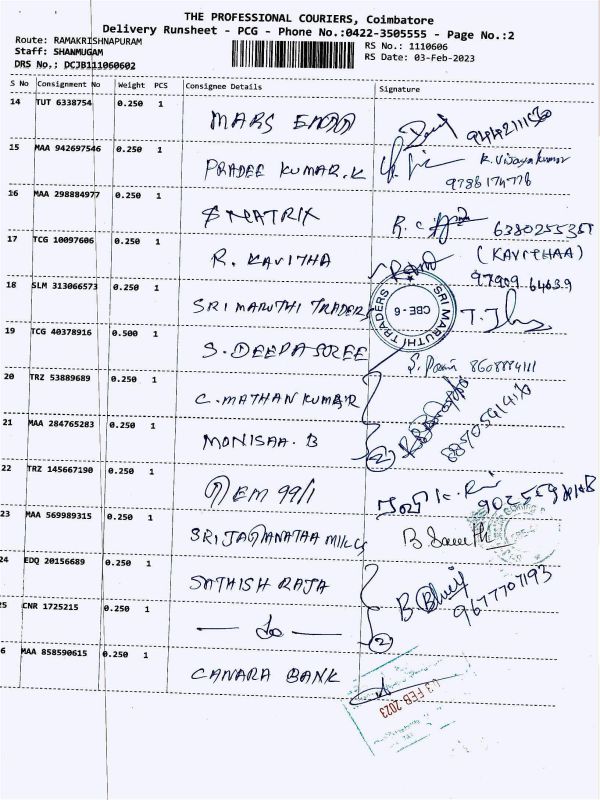 THE PROFESSIONAL COURIERS, Coimbatore
Delivery Runsheet - PCG - Phone No.:0422-3505555 - Page No.:2
Route: RAMAKRISHNAPURAM
Staff: SHANMUGAM
DRS No,: DCJB111060602
RS No.: 1110606
RS Date: 03-Feb-2023
S No Consignment No Weight PCS Consignee Details Signature
14 TUT 6338754 0.250 1 MARS
15 MAA 942697546 0.250 1 PRADEE KUMAR.K K. Vijayakumar
9786174778
16 MAA 298884977 0.250 1 MATRIX R. C 6380255351
17 TCG 10097606 0.250 1 R. KAVITHA (KAVITHAA)
97909 64639
18 SLM 313066573 0.250 1 SRI MARUTHI TRADERS
SRI MARUTHI TRADERS CBE-6
19 TCG 40378916 0.500 1 S. DEEPASREE 8608884111
20 TRZ 53889689 0.250 1 C. MATHAN KUMAR
21 MAA 284765283 0.250 1 MONISAA. B 2
22 TRZ 145667190 0.250 1 GEM 99/1
23 MAA 569989315 0.250 1 SRI JAGANATAA MILLS
24 EDQ 20156689 0.250 1 SATHISH RAJA 9677707193
5 CNR 1725215 0.250 1 — Do — 2
6 MAA 858590615 0.250 1 CANARA BANK
3 FEB 2023